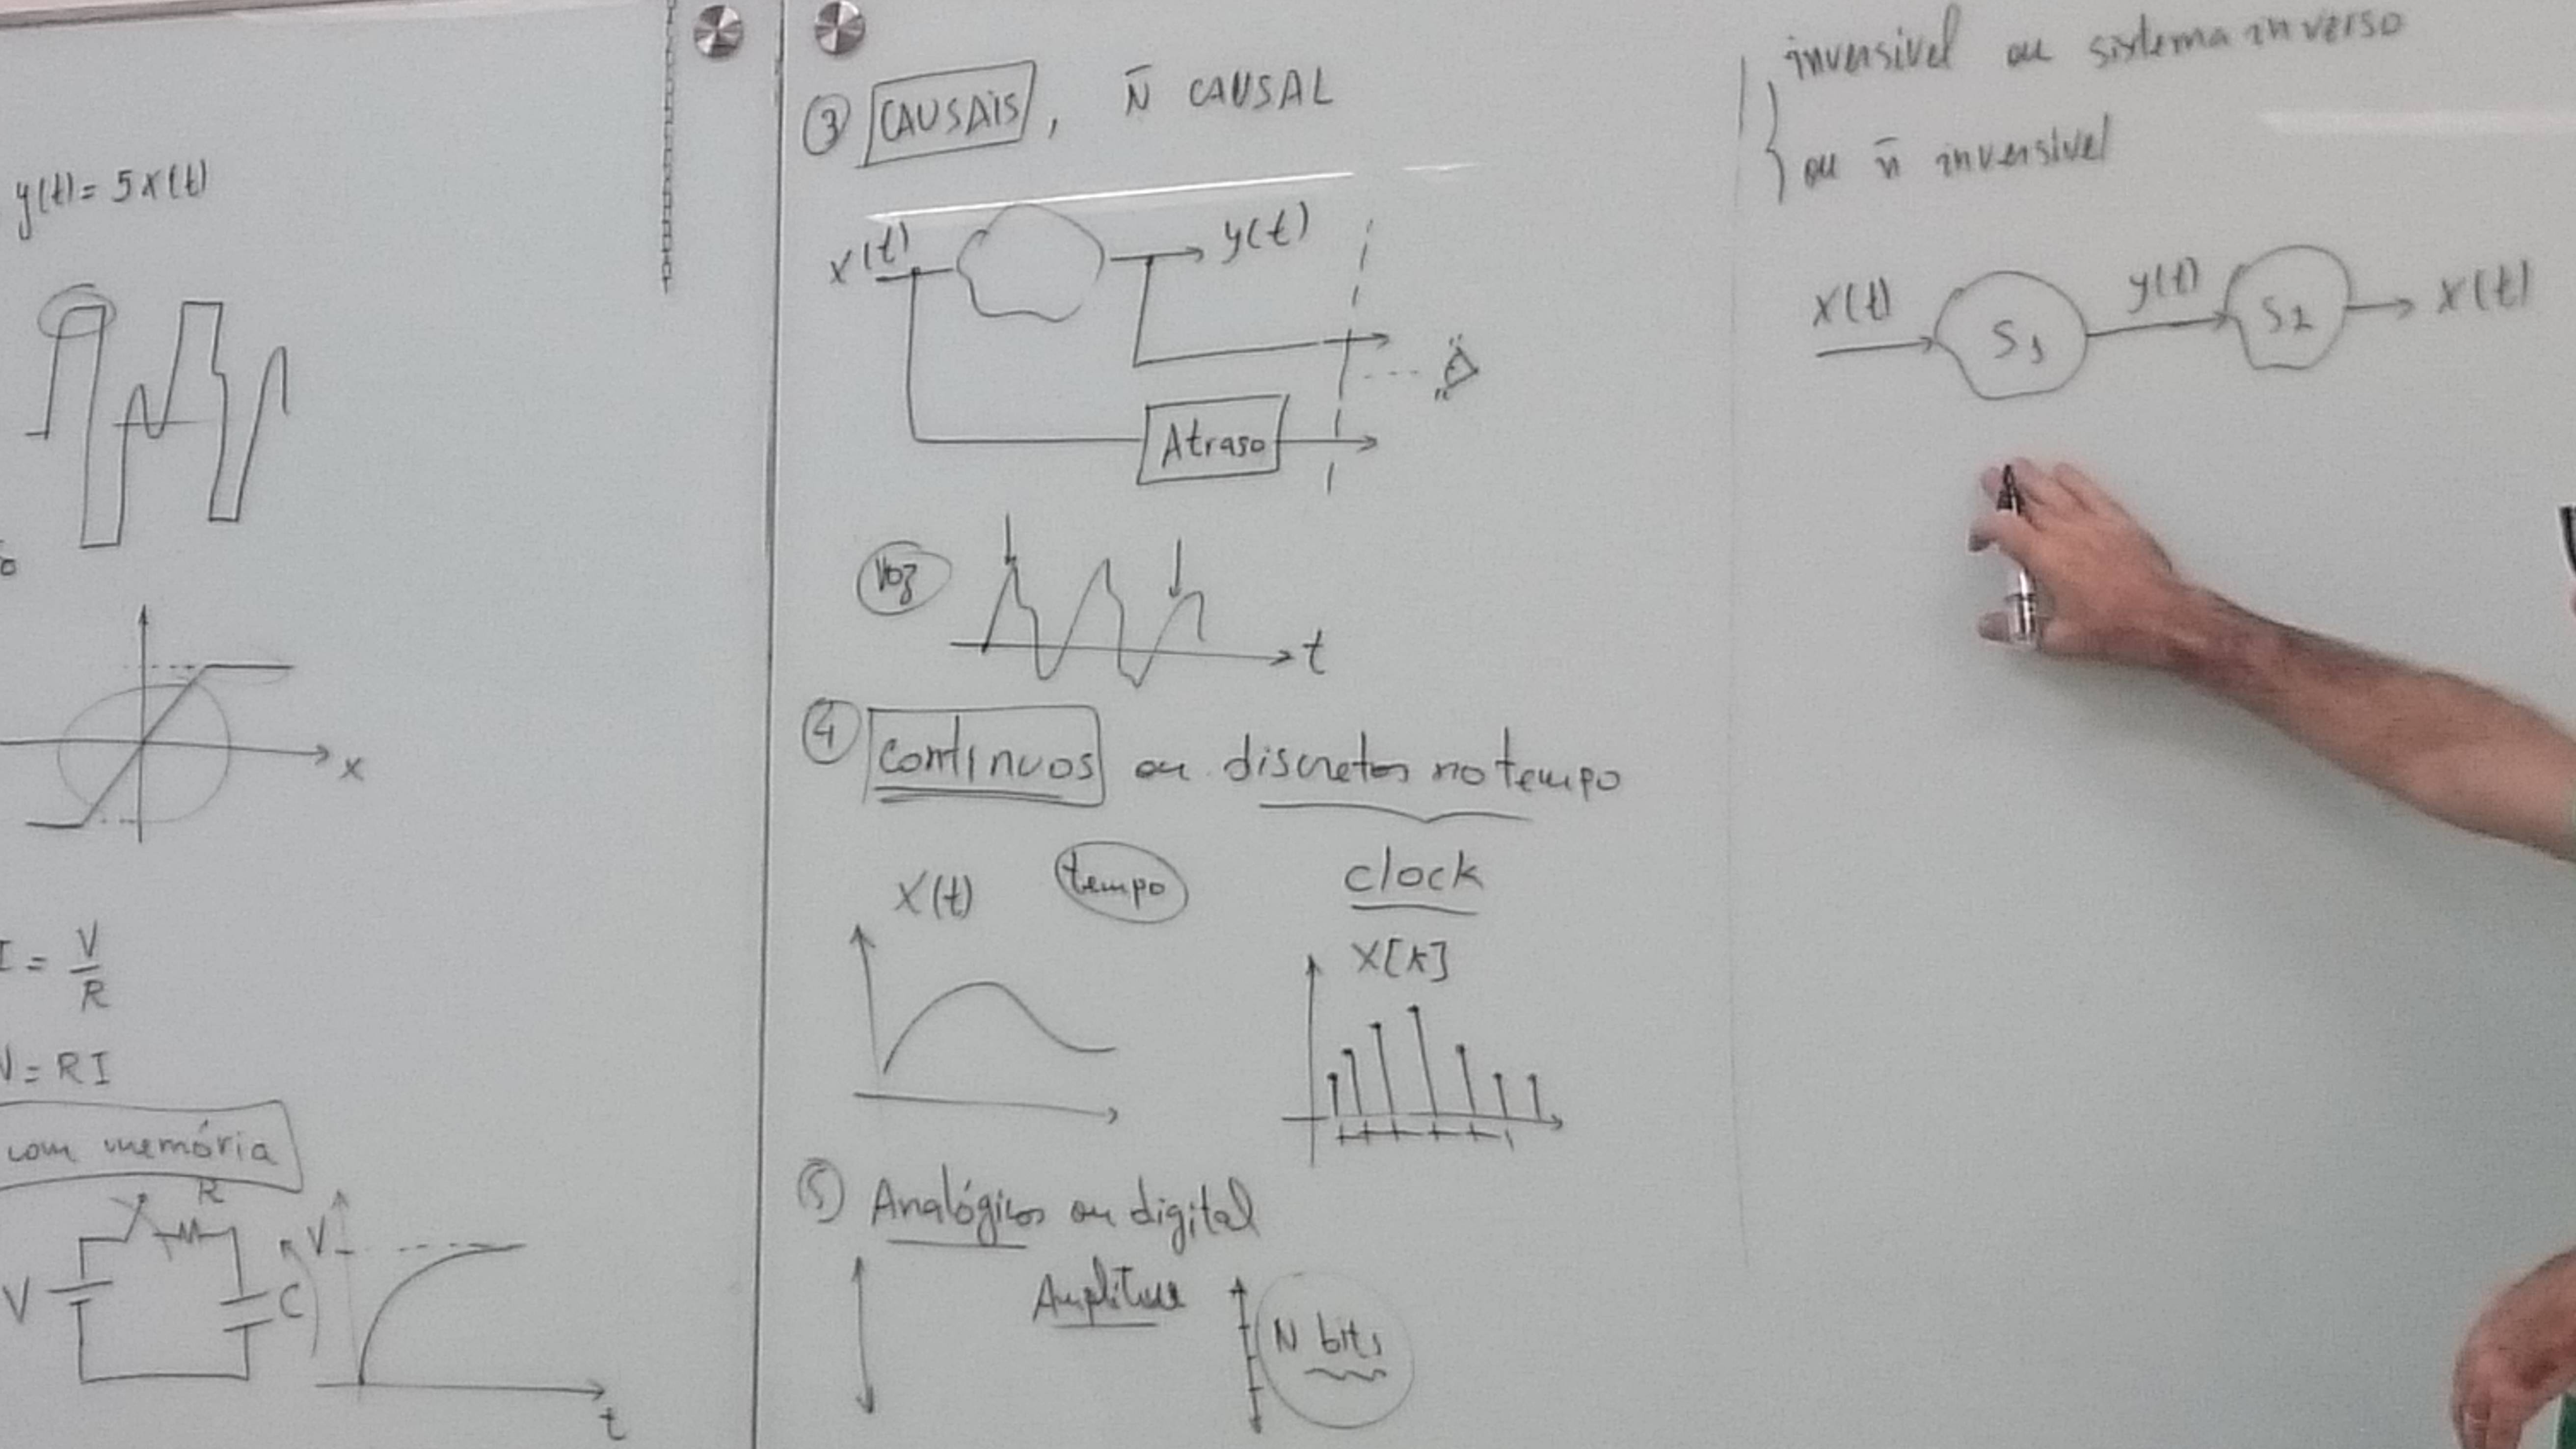 y(t) = 5x(t)
x
I = V/R
V = RI
com memória
R
V
C
V
t
③ CAUSAIS, N̄ CAUSAL
x(t)
y(t)
Atraso
Voz
t
④ contínuos ou discretos no tempo
x(t)
tempo
clock
x[k]
⑤ Analógicos ou digital
Amplitude
N bits
inversível ou sistema inverso
ou n̄ inversível
x(t)
S1
y(t)
S2
x(t)